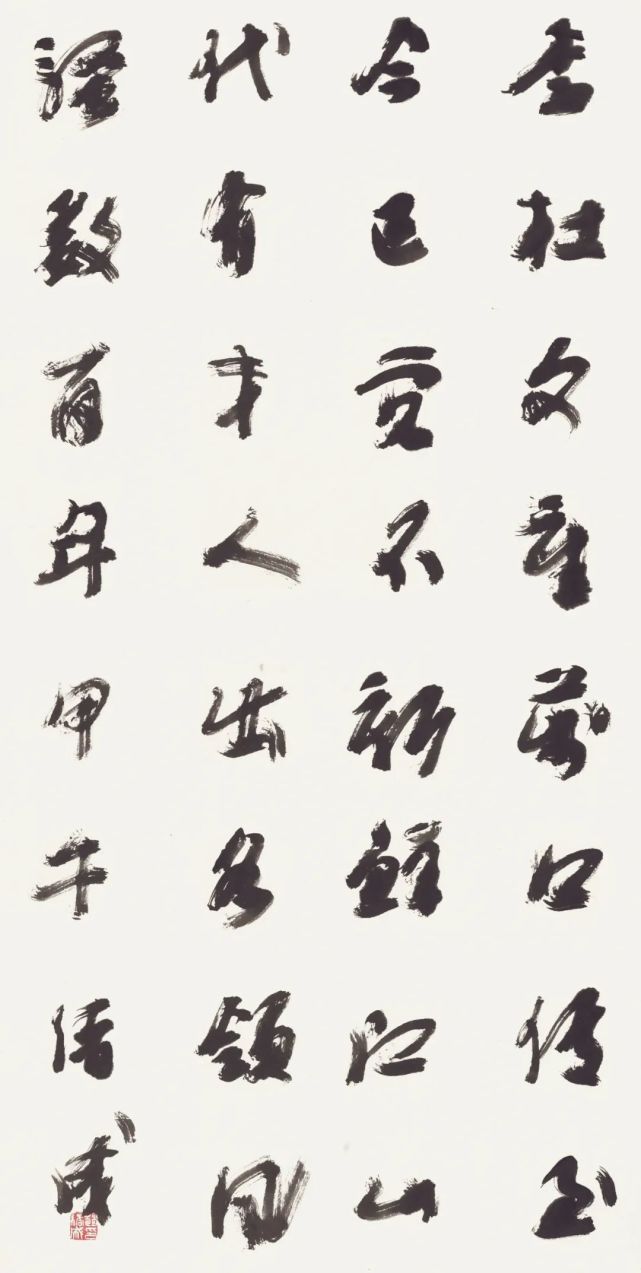 李杜文章萬口傳至
今已覺不新鮮江山
代有才人出各領風
騷數百年甲午